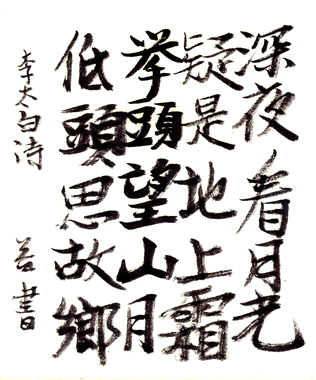 深夜看月光
疑是地上霜
挙頭望山月
低頭思故鄉
李太白诗
書